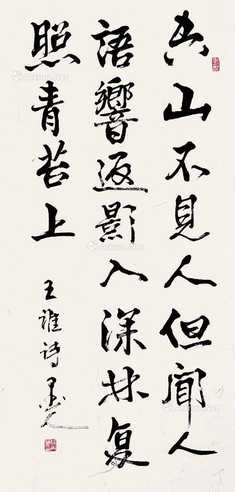 空山不見人但聞人
語響返影入深林复
照青苔上
王維詩